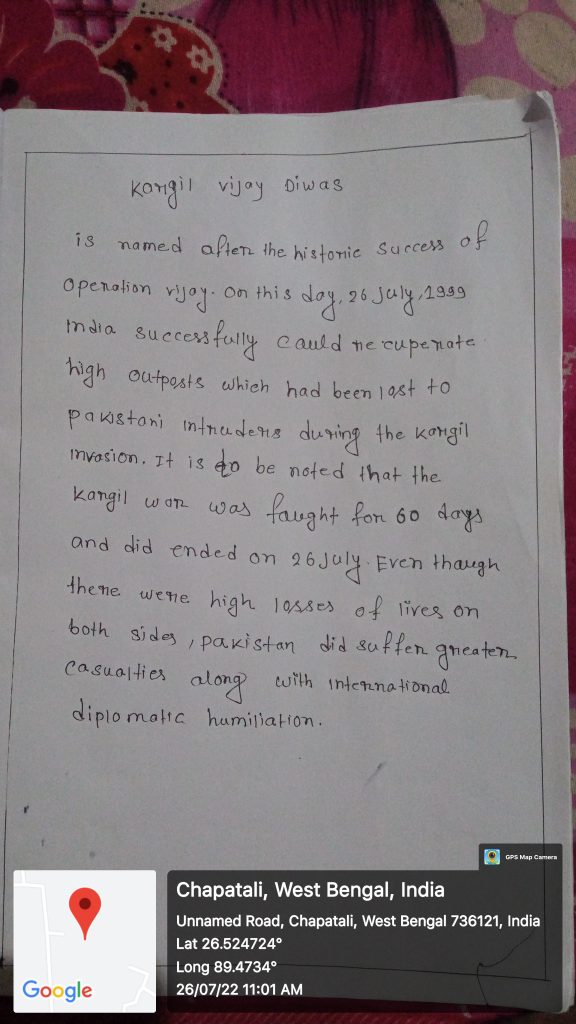 Kargil vijay Diwas
is named after the historic success of
operation vijay. On this day, 26 July, 1999
India successfully cauld recuperate
high outposts which had been last to
pakistani intruders during the kargil
invasion. It is to be noted that the
kargil war was faught for 60 days
and did ended on 26 July. Even thaugh
there were high losses of lives on
both sides, pakistan did suffer greater
casualties along with international
diplomatic humiliation.
GPS Map Camera
Chapatali, West Bengal, India
Unnamed Road, Chapatali, West Bengal 736121, India
Lat 26.524724°
Long 89.4734°
26/07/22 11:01 AM
Google